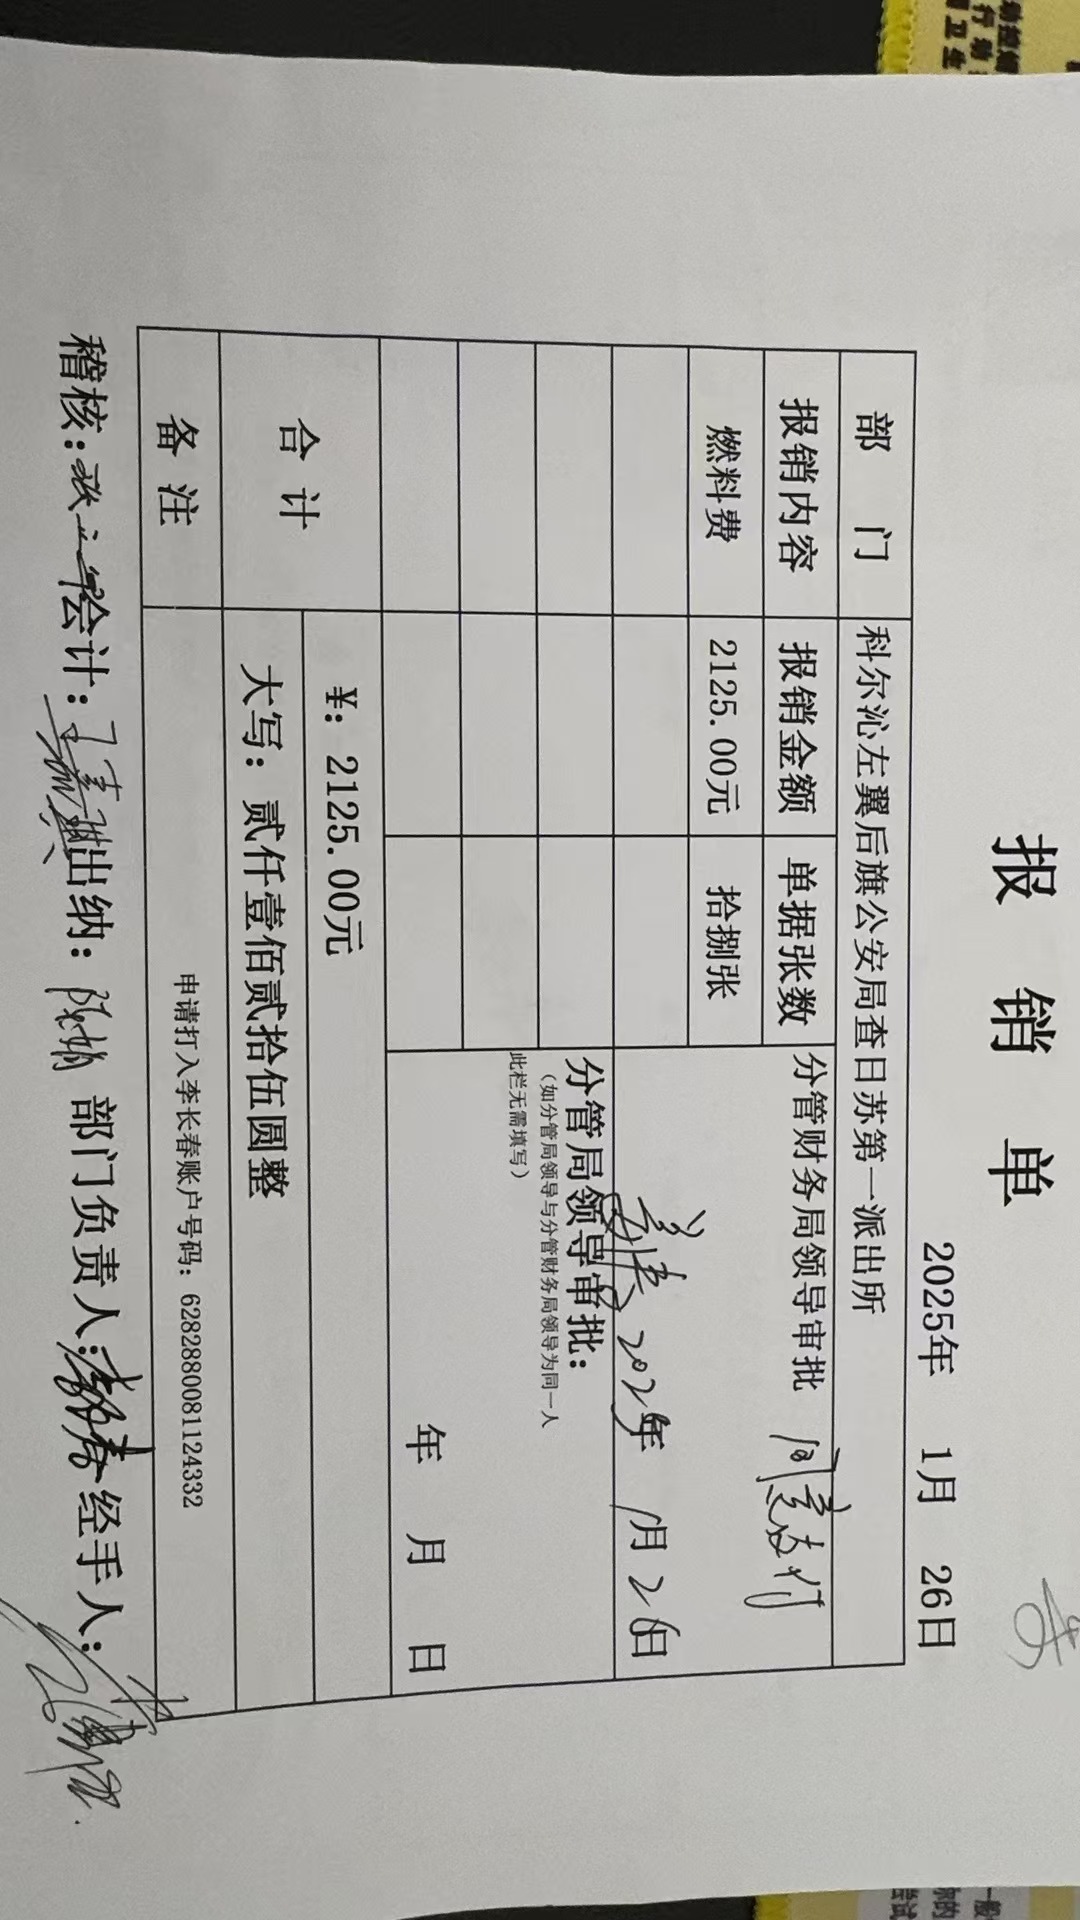 报 销 单
2025年 1月 26日
部 门 科尔沁左翼后旗公安局查日苏第一派出所
报销内容 报销金额 单据张数 分管财务局领导审批
燃料费 2125.00元 拾捌张
2025年 1月 26日
分管局领导审批：
（如分管局领导与分管财务局领导为同一人
此栏无需填写）
年 月 日
合 计 ¥：2125.00元
大写：贰仟壹佰贰拾伍圆整
备 注 申请打入李长春账户号码：6282880081124332
稽核： 会计： 出纳：陈娟 部门负责人： 经手人：